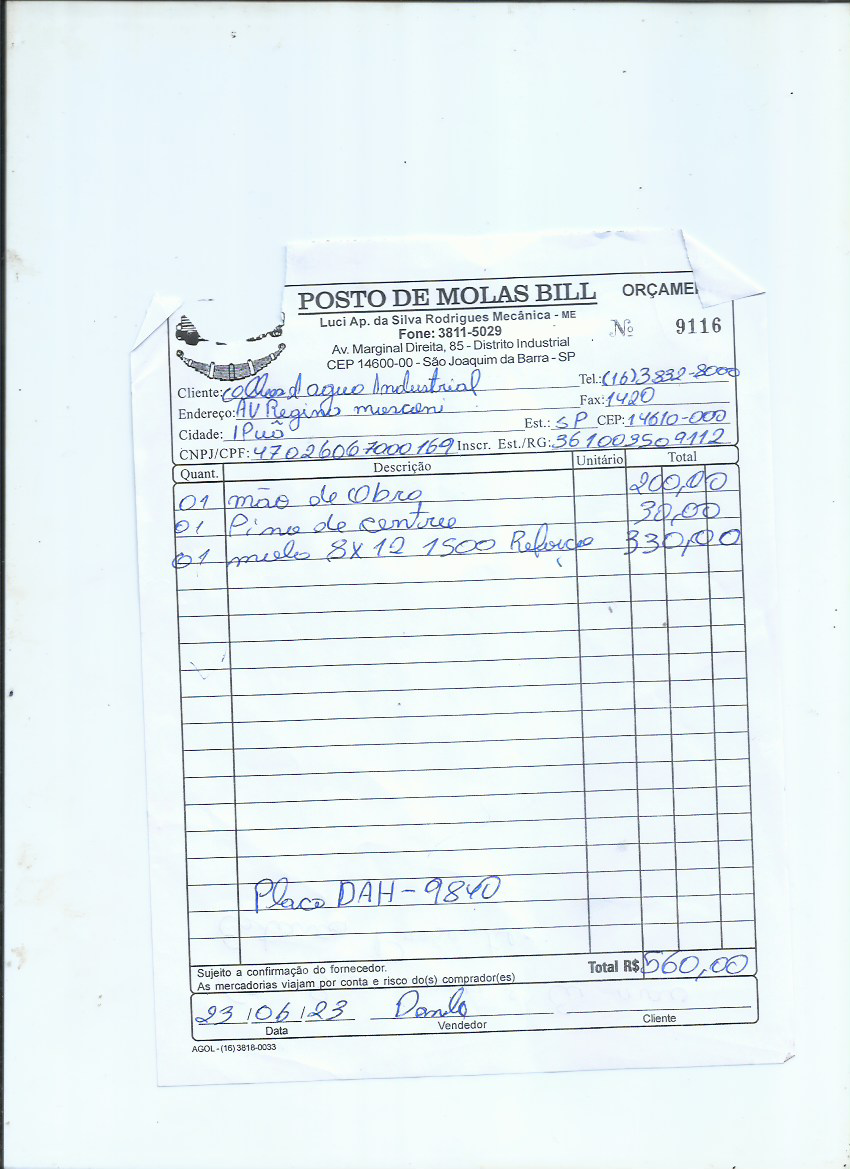 POSTO DE MOLAS BILL ORÇAME
Luci Ap. da Silva Rodrigues Mecânica - ME
Fone: 3811-5029
Nº 9116
Av. Marginal Direita, 85 - Distrito Industrial
CEP 14600-00 - São Joaquim da Barra - SP
Cliente: d agua Industrial Tel.: (16) 3832-8000
Endereço: AV Regino Fax: 1420
Cidade: IPuã Est.: SP CEP: 14610-000
CNPJ/CPF: 47026067000169 Inscr. Est./RG: 361003509112
Quant. Descrição Unitário Total
01 mão de Obra 200,00
01 Pino de centro 30,00
01 8X12 1500 330,00
Placa DAH-9840
Sujeito a confirmação do fornecedor.
As mercadorias viajam por conta e risco do(s) comprador(es)
Total R$ 560,00
23/06/23 Danilo
Data Vendedor Cliente
AGOL - (16) 3818-0033